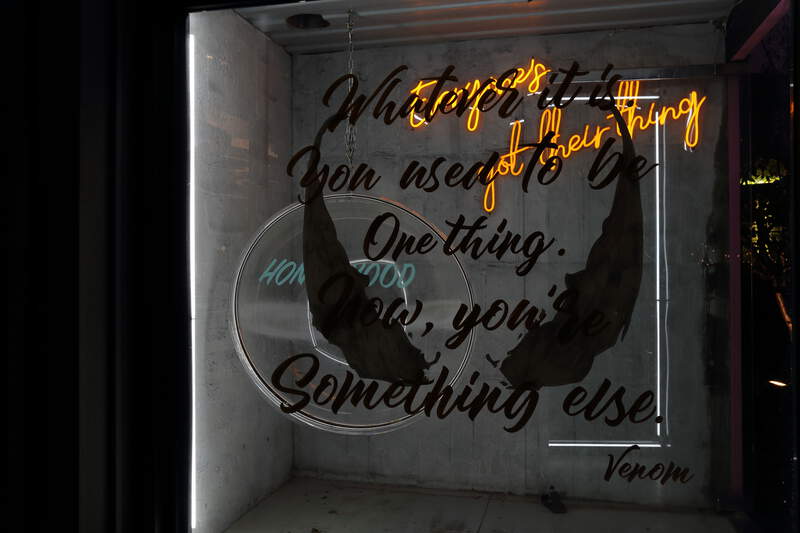 Whatever it is
You used to be
One thing.
Now, you're
Something else.
Venom
Everyone's
got their thing